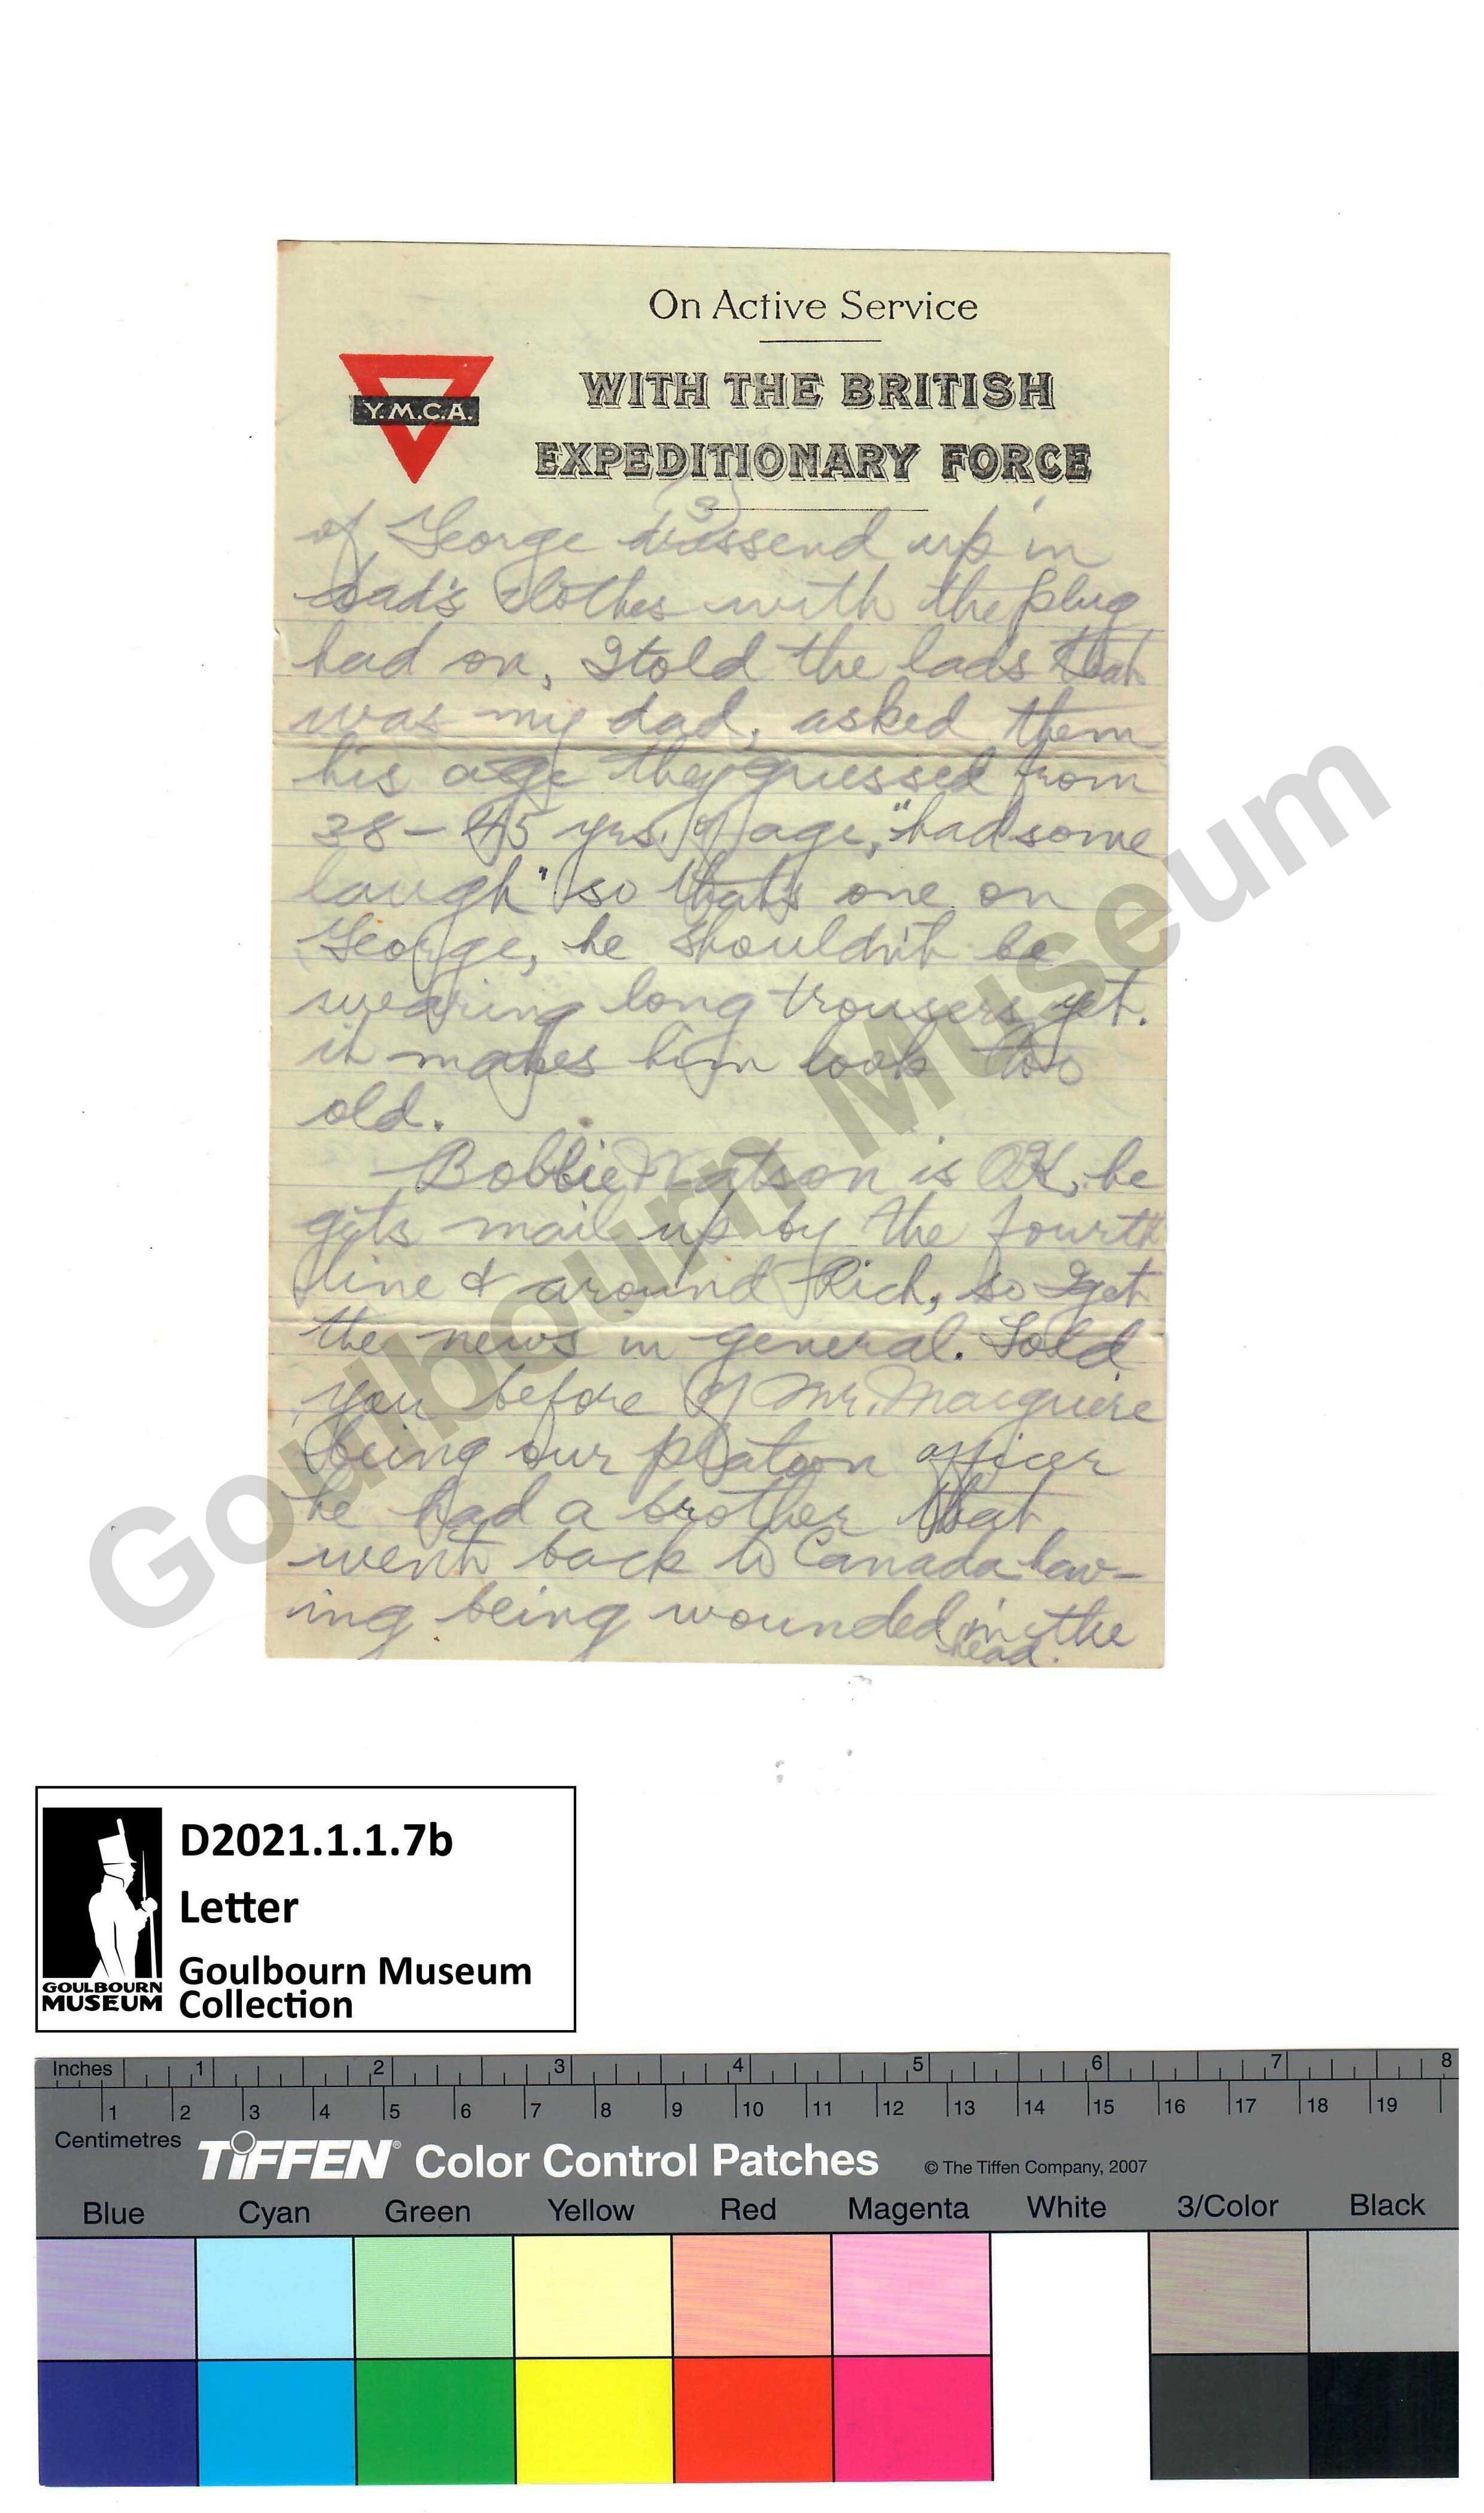 On Active Service
Y.M.C.A.
WITH THE BRITISH
EXPEDITIONARY FORCE
(3)
of George dressend up in
Dad's clothes with the plug
had on, I told the lads that
was my dad, asked them
his age they guessed from
38 – 45 yrs. of age, "had some
laugh" so that's one on
George, he shouldn't be
wearing long trousers yet.
it makes him look too
old.
Bobbie Watson is OK, he
gets mail up by the fourth
line & around Rich, so I get
the news in general. Told
you before of Mr. Macguire
being our platoon officer
he had a brother that
went back to Canada hav-
ing being wounded in the
head.
Goulbourn Museum
D2021.1.1.7b
Letter
Goulbourn Museum
Collection
GOULBOURN
MUSEUM
Inches 1 2 3 4 5 6 7 8
1 2 3 4 5 6 7 8 9 10 11 12 13 14 15 16 17 18 19
Centimetres
TIFFEN® Color Control Patches © The Tiffen Company, 2007
Blue Cyan Green Yellow Red Magenta White 3/Color Black